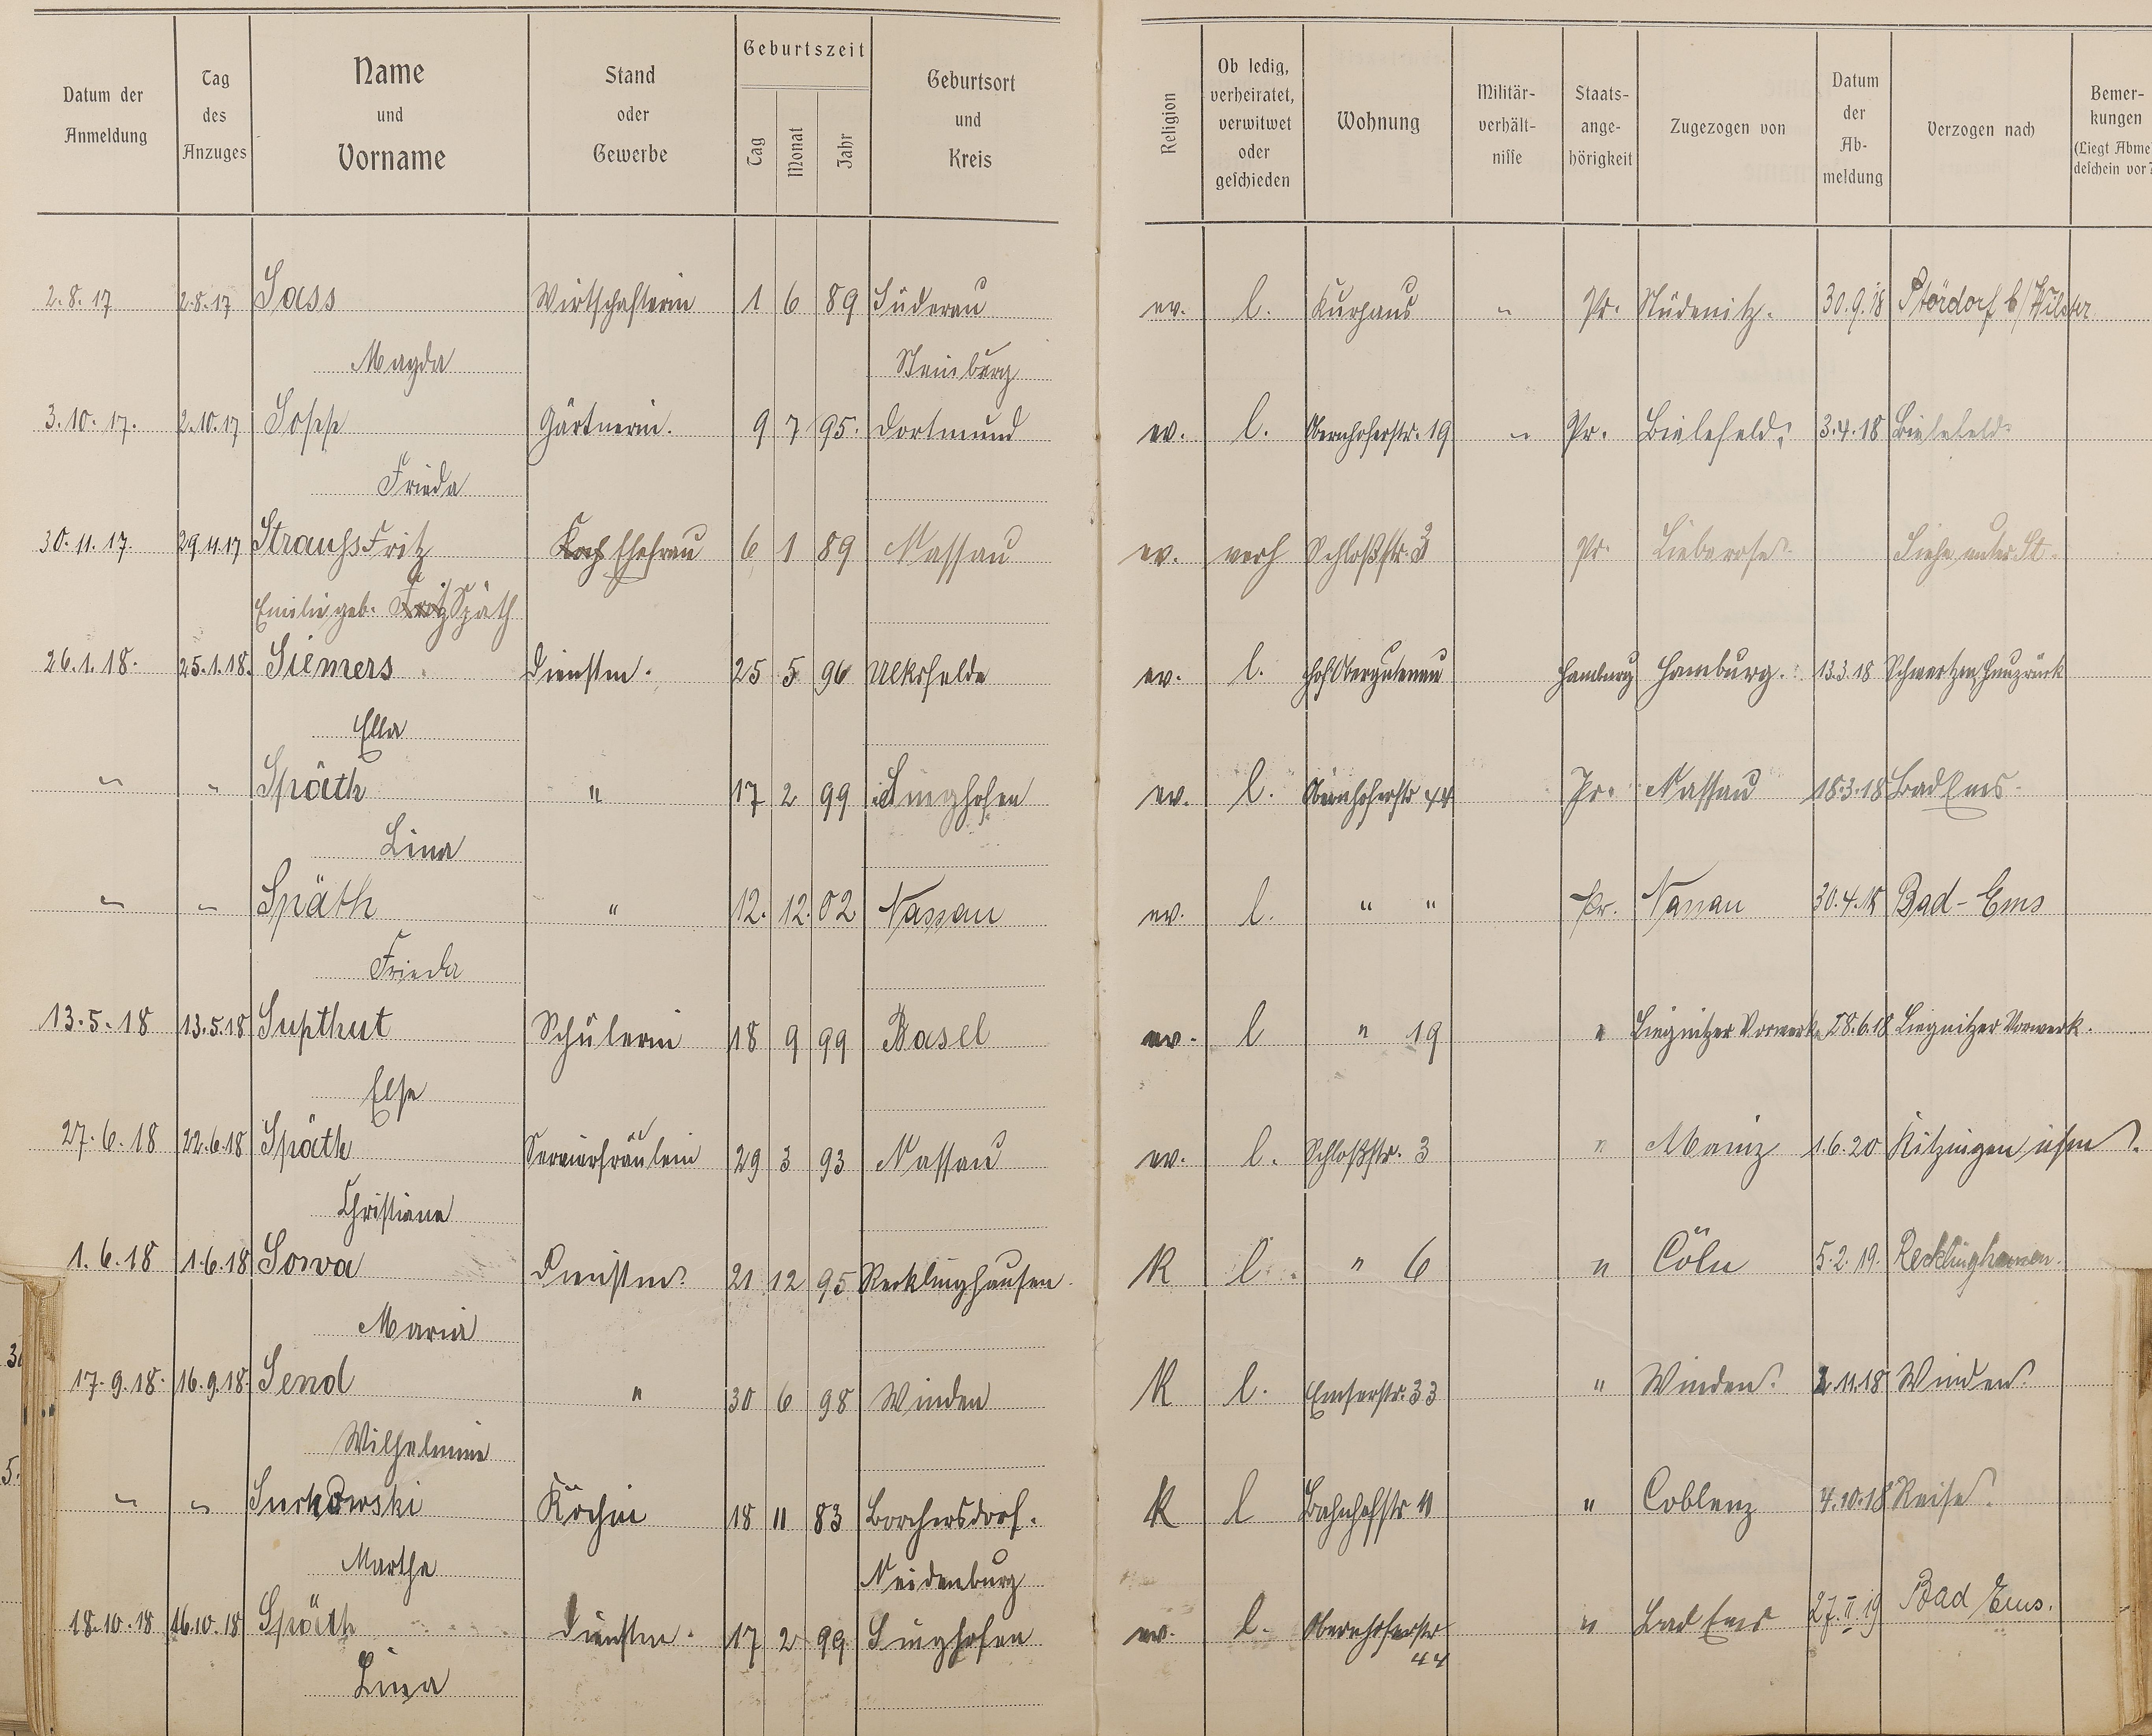 Datum der Anmeldung | Tag des Anzuges | Name und Vorname | Stand oder Gewerbe | Geburtszeit Tag Monat Jahr | Geburtsort und Kreis | Religion | Ob ledig, verheiratet, verwitwet oder geschieden | Wohnung | Militär-verhält-nisse | Staats-ange-hörigkeit | Zugezogen von | Datum der Ab-meldung | Verzogen nach | Bemer-kungen (Liegt Abme deschein vor?
2.8.17 2.8.17 Sass Wirtschafterin 1 6 89 Süderau ev. l. Kurhaus " Pr. Stüdenitz. 30.9.18 Stördorf b/Wilster
Magda Steinburg
3.10.17. 2.10.17 Gärtnerin. 9 7 95. Dortmund ev. l. Obernhoferstr. 19 " Pr. Bielefeld. 3.4.18 Bielefeld.
Frieda
30.11.17. 29.11.17 Strauss Fritz Koch Ehefrau 6 1 89 Nassau ev. verh Schloßstr. 3 Pr. Lieberose. Siehe unter St.
Emilie geb. Fritz Späth
26.1.18. 25.1.18. Siemers Dienstm. 25 5 96 ev. l. Hof Obergutenau Hamburg Hamburg. 13.3.18 Schwartzen, Hunzrück
Ella
" " Späth " 17 2 99 Singhofen ev. l. Obernhoferstr 44 Pr. Nassau 18.3.18 Bad Ems.
Lina
" " Späth " 12. 12. 02 Nassau ev. l. " " Pr. Nassau 30.4.18 Bad-Ems
Frieda
13.5.18 13.5.18 Supthut Schülerin 18 9 99 Basel ev. l " 19 " Liegnitzer Vorwerk 28.6.18 Liegnitzer Vorwerk.
Else
27.6.18 22.6.18 Späth Servierfräulein 29 3 93 Nassau ev. l. Schloßstr. 3 " Mainz 1.6.20 Kitzingen
Christiane
1.6.18 1.6.18 Sowa Dienstm. 21 12 95 Recklinghausen. K l. " 6 " Cöln 5.2.19. Recklinghausen.
Maria
17.9.18. 16.9.18. Send " 30 6 98 Winden K l. Emserstr. 33 " Winden. 2.11.18 Winden.
Wilhelmine
" " Surkowski Köchin 18 11 83 Borchersdorf. K l Bahnhofstr 11 " Coblenz 4.10.18 Reise.
Martha Neidenburg
18.10.18 16.10.18 Späth Dienstm. 17 2 99 Singhofen ev. l. Obernhoferstr " Bad Ems 27.II.19 Bad Ems.
44
Lina